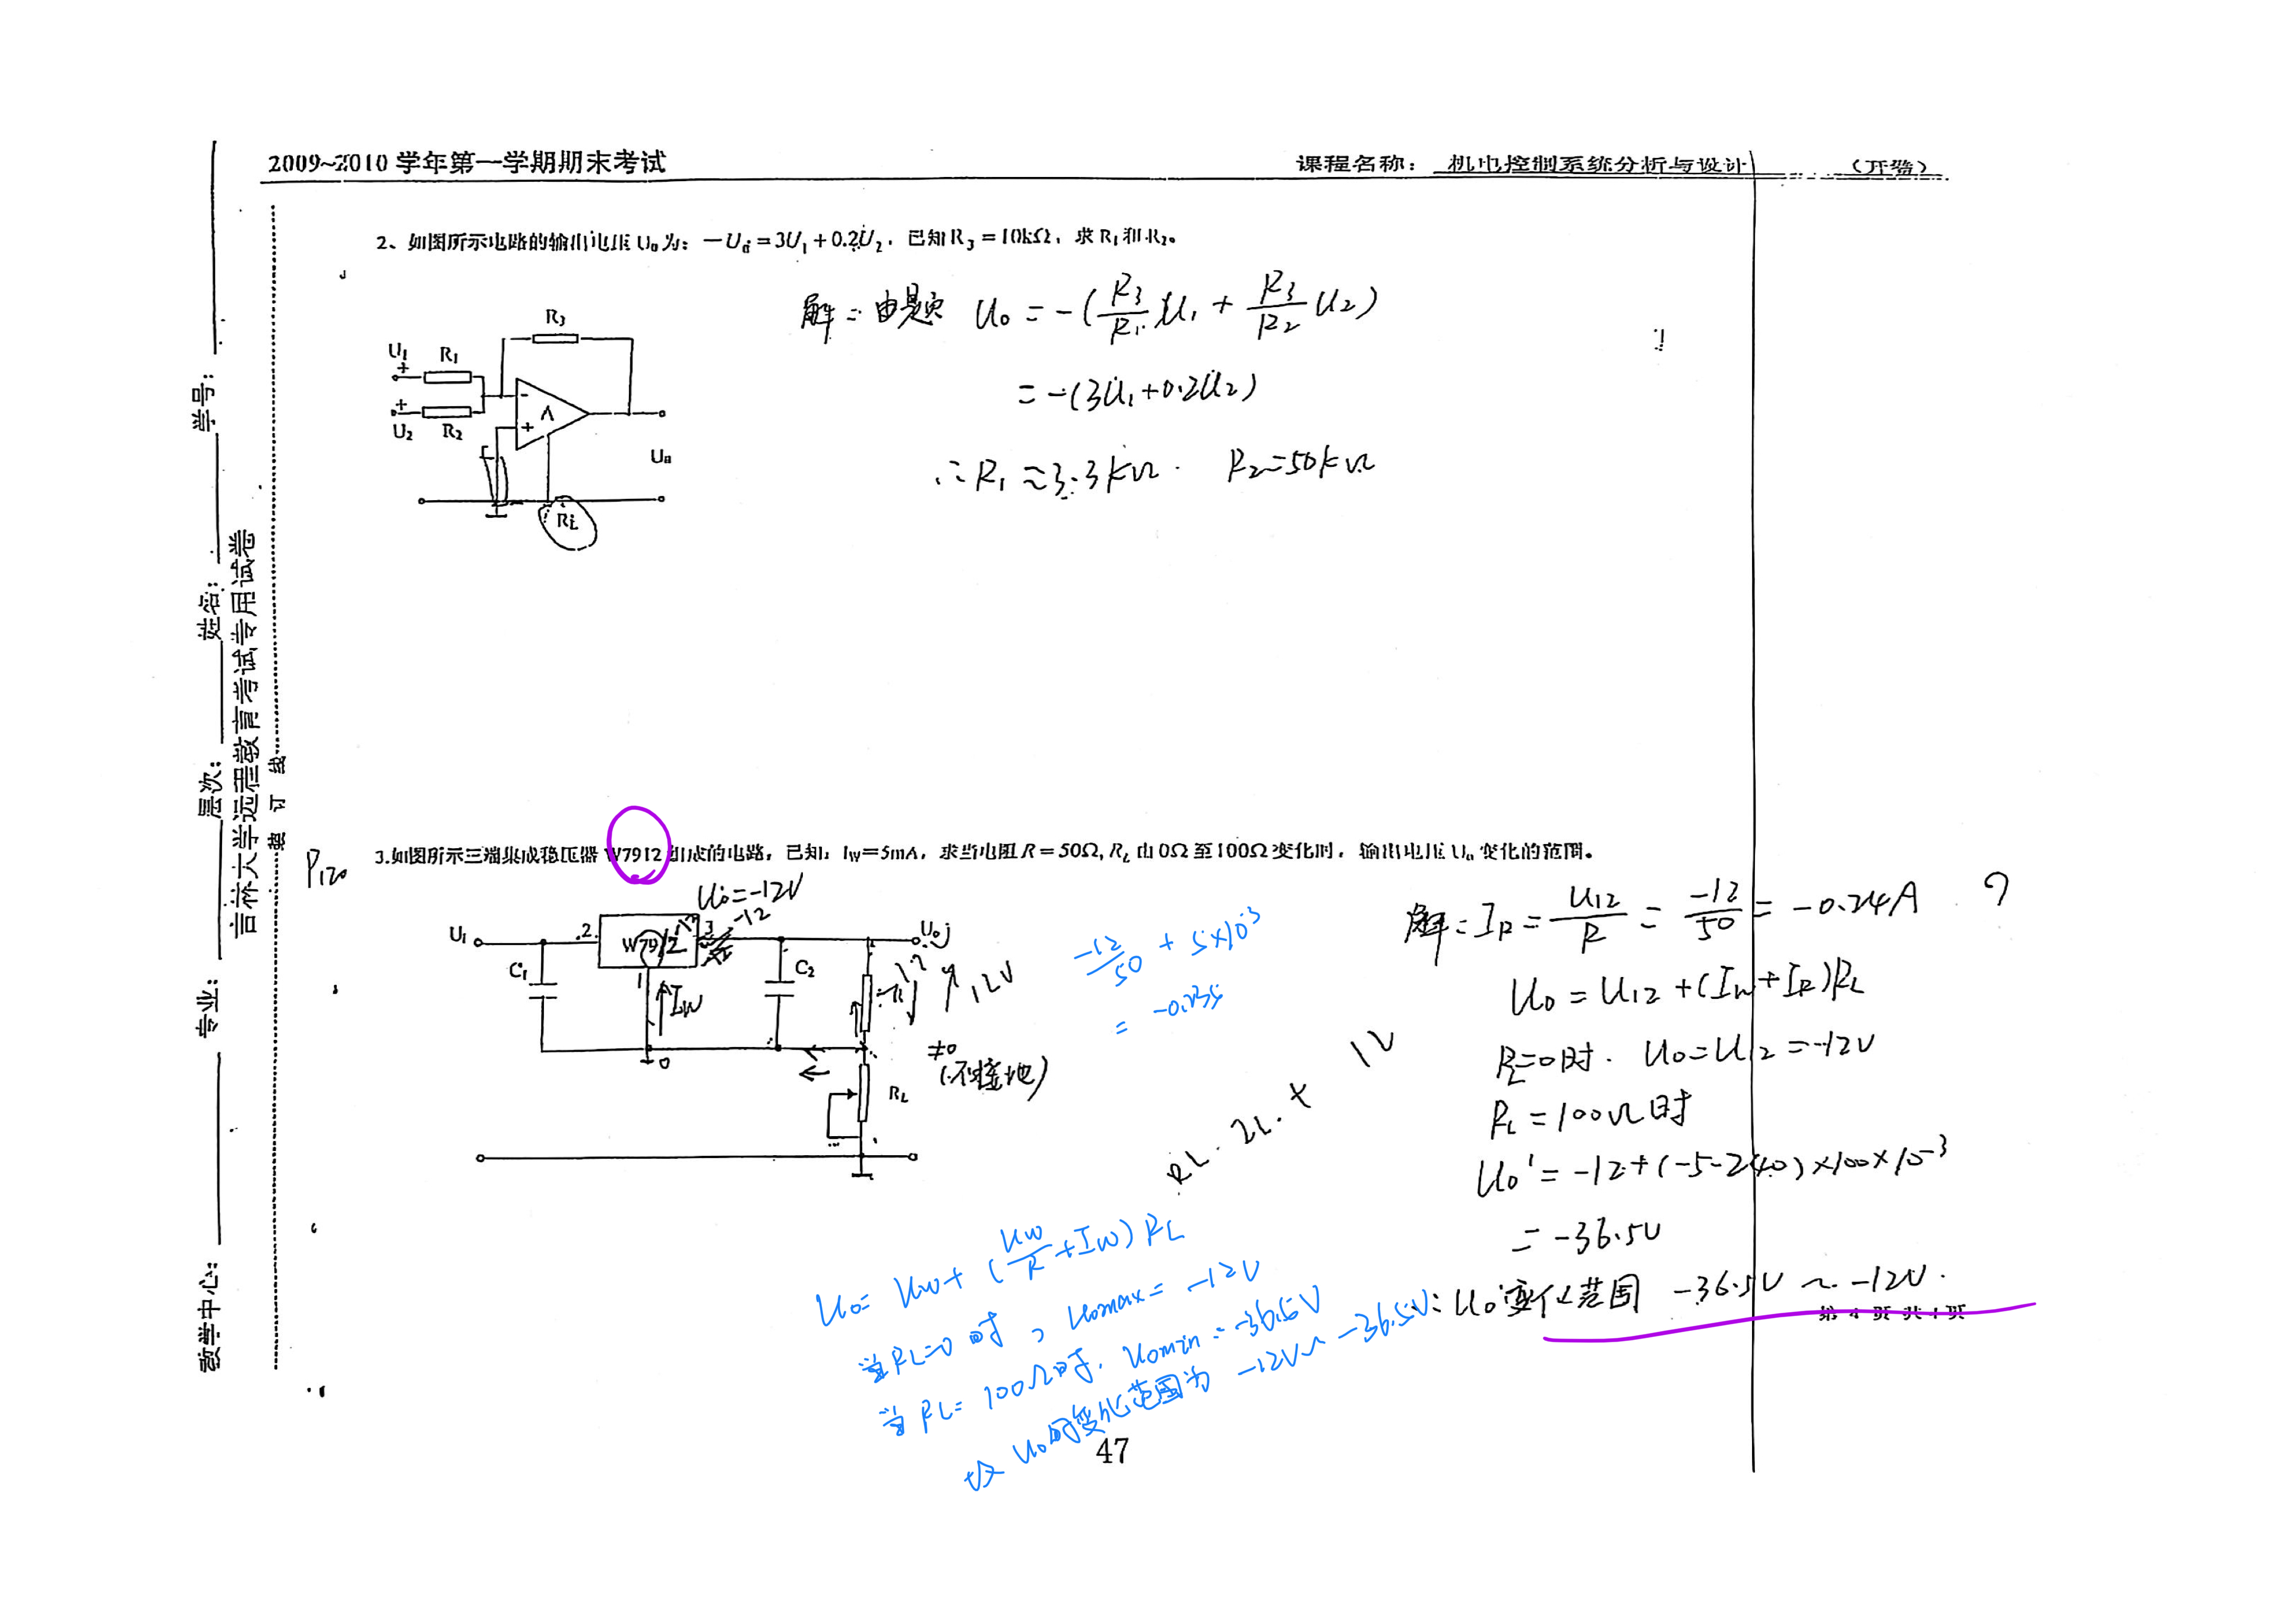 2009~2010 学年第一学期期末考试
课程名称： 机电控制系统分析与设计 （开卷）
学号：
姓名：
层次：
专业：
教学中心：
吉林大学远程教育考试专用试卷
装 订 线
2、如图所示电路的输出电压 U₀ 为：－U₀＝3U₁＋0.2U₂，已知 R₃＝10kΩ，求 R₁ 和 R₂。
R₃
U₁
R₁
+
-
A
+
+
U₂
R₂
U₀
Ri
解：由题 U₀ = -(R₃/R₁ U₁ + R₃/R₂ U₂)
= -(3U₁+0.2U₂)
∴R₁ ≈3.3kΩ. R₂=50kΩ
P₁₂₀
3.如图所示三端集成稳压器 W7912 组成的电路，已知：I_W＝5mA，求当电阻 R＝50Ω, R_L 由 0Ω 至 100Ω 变化时，输出电压 U₀ 变化的范围。
U₀=-12V
-12
U₁
2
W7912
3
U₀
C₁
1
I_W
C₂
R
12V
0
≠0
(不接地)
R_L
-12/50 + 5×10⁻³
= -0.235
解：I_R = U₁₂/R = -12/50 = -0.24A ?
U₀ = U₁₂ +(I_W+I_R)R_L
R_L=0时. U₀=U₁₂=-12V
R_L =100Ω时
U₀' = -12+(-5-240)×100×10⁻³
= -36.5V
U₀变化范围 -36.5V ~ -12V.
U₀= U_W+ (U_W/R+I_W) R_L
当R_L=0 时, U₀max= -12V
当R_L= 100Ω时. U₀min=-36.5V
故 U₀的变化范围为 -12V~ -36.5V
第 4 页 共 4 页
47